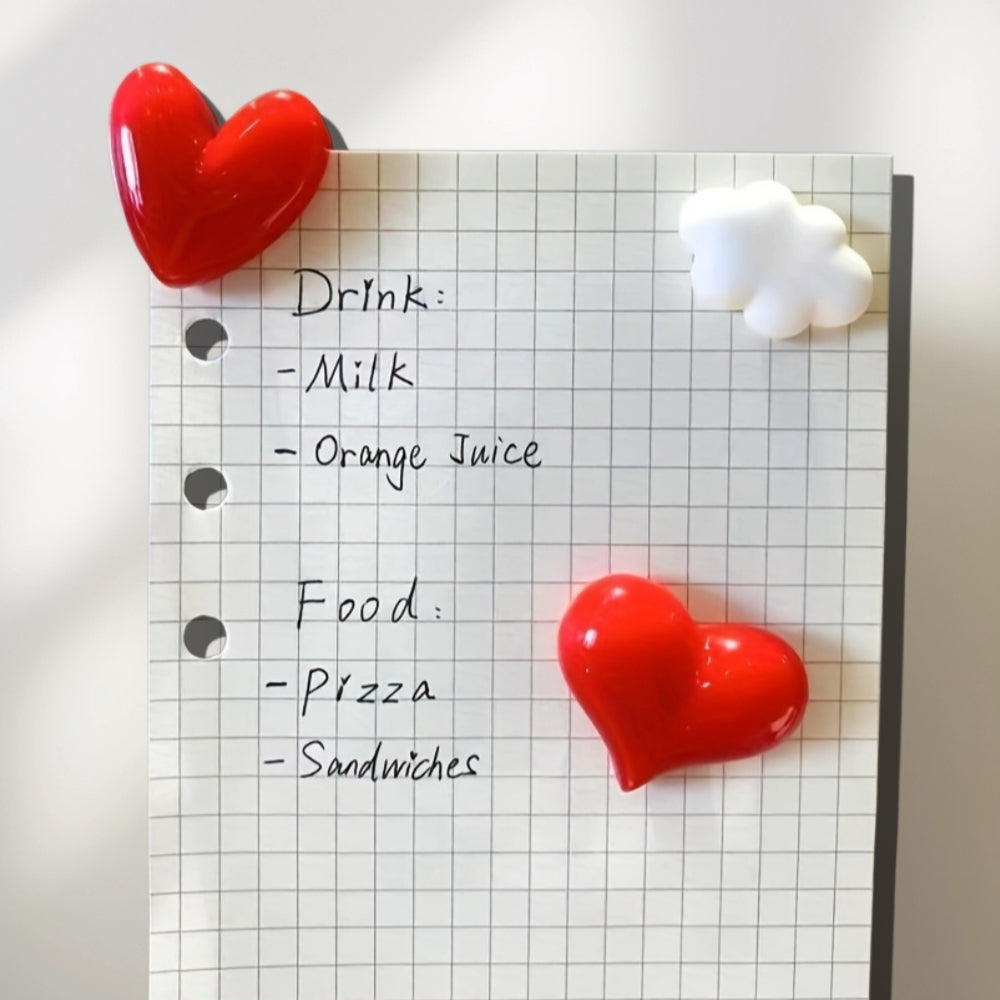 Drink:
- Milk
- Orange Juice
Food:
- Pizza
- Sandwiches